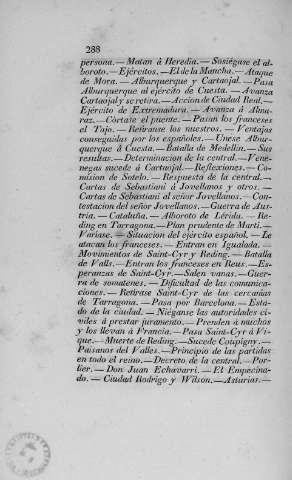 288
persona.—Matan á Heredia.—Sosiégase el al-
boroto.—Ejércitos.—El de la Mancha.—Ataque
de Mora.—Alburquerque y Cartaojal.—Pasa
Alburquerque al ejército de Cuesta.—Avanza
Cartaojal y se retira.—Accion de Ciudad Real.—
Ejército de Extremadura.—Avanza á Alma-
raz.—Córtase el puente.—Pasan los franceses
el Tajo.—Retíranse los nuestros.—Ventajas
conseguidas por los españoles.—Unese Albur-
querque á Cuesta.—Batalla de Medellin.—Sus
resultas.—Determinacion de la central.—Vene-
negas sucede á Cartaojal.—Reflexiones.—Co-
mision de Sotelo.—Respuesta de la central.—
Cartas de Sebastiani á Jovellanos y otros.—
Cartas de Sebastiani al señor Jovellanos.—Con-
testacion del señor Jovellanos.—Guerra de Aus-
tria.—Cataluña.—Alboroto de Lérida.—Re-
ding en Tarragona.—Plan prudente de Martí.—
Varíase.—Situacion del ejército español.—Le
atacan los franceses.—Entran en Igualada.—
Movimientos de Saint-Cyr y Reding.—Batalla
de Valls.—Entran los franceses en Reus.—Es-
peranzas de Saint-Cyr.—Salen vanas.—Guer-
ra de somatenes.—Dificultad de las comunica-
ciones.—Retírase Saint-Cyr de las cercanías
de Tarragona.—Pasa por Barcelona.—Esta-
do de la ciudad.—Niéganse las autoridades ci-
viles á prestar juramento.—Prenden á muchos
y los llevan á Francia.—Pasa Saint-Cyr á Vi-
que.—Muerte de Reding.—Sucede Coupigny.—
Paisanos del Valles.—Principio de las partidas
en todo el reino.—Decreto de la central.—Por-
lier.—Don Juan Echavarri.—El Empecina-
do.—Ciudad Rodrigo y Wilson.—Asturias.—